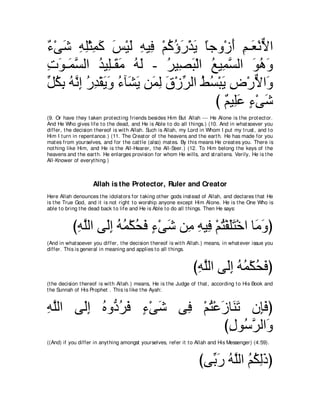 الاٌّنْعَـمِ أَزْوجاً يَذْرَؤُكُمْ فِيهِ لَيْسَ كَمِثْلِهِ شَىْءٌ
وَهُوَ السَّمِيعُ الْبَصِيرُ - لَهُ مَقَـلِيدُ السَّمَـوَتِ
وَالاٌّرْضِ يَبْسُطُ الرِّزْقَ لِمَن يَشَآءُ وَيَقْدِرُ إِنَّهُ بِكُلِّ
شَىْءٍ عَلِيمٌ )
(9. Or have they taken protecting friends besides Him But Allah -- He Alone is the protector. And He Who gives life to the dead, and He is Able to do all things.) (10. And in whatsoever you differ, the decision thereof is with Allah. Such is Allah, my Lord in Whom I put my trust, and to Him I turn in repentance.) (11. The Creator of the heavens and the earth. He has made for you mates from yourselves, and for the cattle (also) mates. By this means He creates you. There is nothing like Him, and He is the All-Hearer, the All-Seer.) (12. To Him belong the keys of the heavens and the earth. He enlarges provision for whom He wills, and straitens. Verily, He is the All-Knower of everything.)
Allah is the Protector, Ruler and Creator
Here Allah denounces the idolators for taking other gods instead of Allah, and declares that He is the True God, and it is not right to worship anyone except Him Alone. He is the One Who is able to bring the dead back to life and He is Able to do all things. Then He says:
(وَمَا اخْتَلَفْتُمْ فِيهِ مِن شَىْءٍ فَحُكْمُهُ إِلَى اللَّهِ)
(And in whatsoever you differ, the decision thereof is with Allah.) means, in whatever issue you differ. This is general in meaning and applies to all things.
(فَحُكْمُهُ إِلَى اللَّهِ)
(the decision thereof is with Allah.) means, He is the Judge of that, according to His Book and the Sunnah of His Prophet . This is like the Ayah:
(فَإِن تَنَازَعْتُمْ فِى شَىْءٍ فَرُدُّوهُ إِلَى اللَّهِ
وَالرَّسُولِ)
((And) if you differ in anything amongst yourselves, refer it to Allah and His Messenger) (4:59).
(ذَلِكُمُ اللَّهُ رَبِّى)